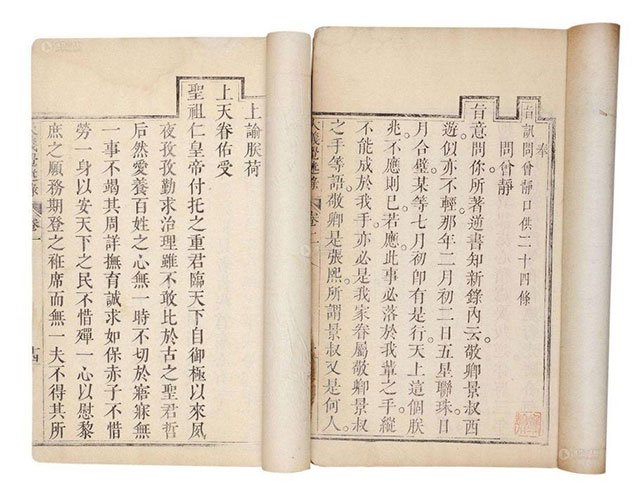 奉
旨訊問曾靜口供二十四條
問曾靜
旨意問你所著逆書知新錄內云。敬卿景叔西
遊似亦不輕。那年二月初二日五星聯珠。日
月合璧。某等七月初卽有是行。天上這個朕
兆。不應則已。若應此事。必落於我輩之手。縱
不能成於我手。亦必是我家眷屬敬卿景叔
之手等語。敬卿是張熙。所謂景叔又是何人。
大義覺迷錄 卷一
上諭朕荷
上天眷佑受
聖祖仁皇帝付托之重君臨天下自御極以來夙
夜孜孜勤求治理雖不敢比於古之聖君哲
后然愛養百姓之心無一時不切於寤寐無
一事不竭其周詳撫育誠求如保赤子不惜
勞一身以安天下之民不惜殫一心以慰黎
庶之願務期登之袵席而無一夫不得其所
大義覺迷錄 卷一